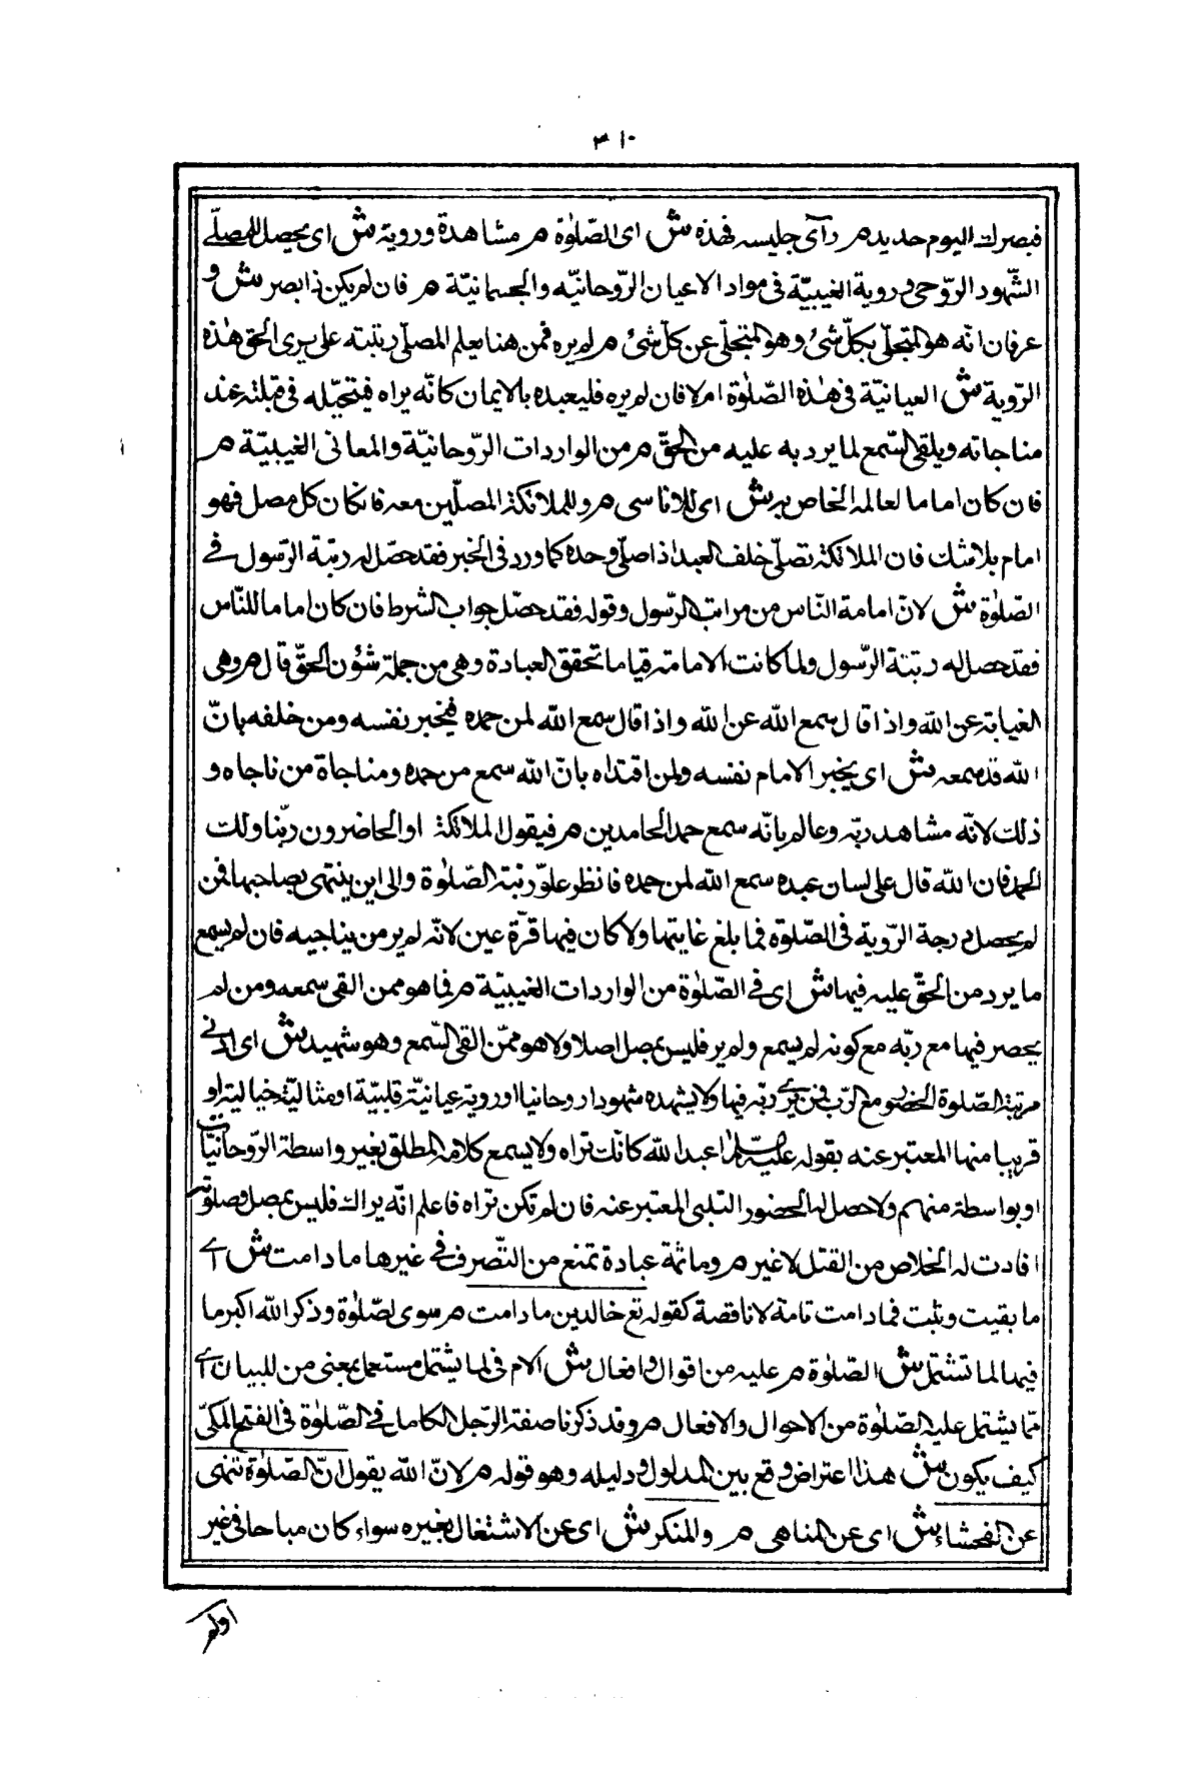 ٣١٠
فبصرك اليوم حديد م رآى جليسه فهذه ش اى الصّلوٰة م مشاهدة وروية ش اى يحصل للمصلّے
الشّهود الرّوحى وروية الغيبيّة فى مواد الاعيان الرّوحانيّه والجسمانيّة م فان لم يكن ذا بصر ش و
عرفان انّه هو المتجلّى بكلّ شئ وهو المتجلّى عن كلّ شئ م لم يره فمن هنا يعلم المصلّى رتبته على يرى الحق هٰذه
الرّوية ش العيانيّة فى هٰذه الصّلوٰة ام لا فان لم يره فليعبده بالايمان كانّه يراه فيتخيّله فى قبلته عند
مناجاته ويلقى السّمع لما يرد به عليه من الحقّ م من الواردات الرّوحانيّة والمعانى الغيبيّة م
فان كان اماما لعالمه الخاص به ش اى للاناسى م وللملائكة المصلّين معه فان كان كل مصل فهو
امام بلا شك فان الملائكة تصلّى خلف العبد اذا صلّى وحده كما ورد فى الخبر فقد حصّل له رتبة الرّسول فے
الصّلوٰة ش لانّ امامة النّاس من مراتب الرّسول وقوله فقد حصّل جواب الشرط فان كان اماما للنّاس
فقد حصل له رتبة الرّسول ولما كانت الامامة قياما تحقق العبادة وهى من جملة شؤن الحقّ قال م وهى
الغيابة عن الله واذا قال سمع الله عن الله واذا قال سمع الله لمن حمده فيخبر نفسه ومن خلفه بانّ
الله قد سمعه ش اى يخبر الامام نفسه ولمن اقتداه بانّ الله سمع من حمده ومناجاة من ناجاه و
ذلك لانّه مشاهد ربّه وعالم بانّه سمع حمد الحامدين م فيقول الملائكة او الحاضرون ربّنا ولك
الحمد فان الله قال على لسان عبده سمع الله لمن حمده فانظر علوّ رتبة الصّلوٰة والى اين ينتهى بصاحبها فمن
لم يحصل درجة الرّوية فى الصّلوة فما بلغ غايتها ولا كان فيها قرّة عين لانّه لم ير من يناجيه فان لم يسمع
ما يرد من الحقّ عليه فيها ش اى فى الصّلوٰة من الواردات الغيبيّة م فما هو ممن القى سمعه ومن لم
يحصر فيها مع ربّه مع كونه لم يسمع ولم ير فليس بمصل اصلا ولا هو ممّن القى السّمع وهو شهيد ش اى ادنے
مرتبة الصّلوة الحضور مع الرّب فمن لا يرے ربّه فيها ولا يشهده شهودا روحانيا او روية عيانيّة قلبيّة او مثاليّة خياليّة او
قريبا منها المعتبر عنه بقوله عليه السّلام اعبد الله كانّك تراه ولا يسمع كلامه المطلق بغير واسطة الرّوحانيّات
او بواسطة منهم ولا حصل له الحضور القلبى المعتبر عنه فان لم تكن تراه فاعلم انّه يراك فليس بمصل وصلوته
افادت له الخلاص من القتل لا غير م وما ثمة عبادة تمنع من التّصرف فے غيرها ما دامت ش اے
ما بقيت وبثبت فما دامت تامة لا ناقصة كقوله تع خالدين ما دامت م سوى لصّلوٰة وذكر الله اكبر ما
فيها لما تشتمل ش الصّلوٰة م عليه من اقوال وافعال ش الام فى لما يشتمل مستعمل بمعنى من للبيان اے
ممّا يشتمل عليه الصّلوٰة من الاحوال والافعال م وقد ذكرنا صفة الرّجل الكامل فے الصّلوٰة فى الفتح المكّى
كيف يكون ش هذا اعتراض وقع بين المدلول ودليله وهو قوله م لانّ الله يقول انّ الصّلوٰة تنهى
عن الفحشاء ش اى عن المناهى م والمنكر ش اى عن الاشتغال بغيره سواء كان مباحا فى غير